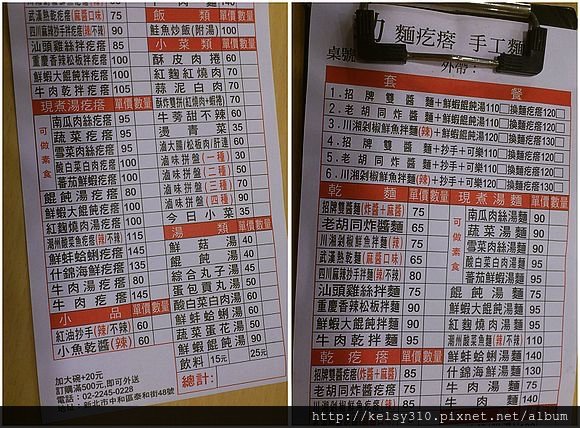 武漢熱乾疙瘩(麻醬口味) 75
四川麻辣抄手拌疙瘩(辣/不辣) 90
汕頭雞絲拌疙瘩 85
重慶香辣松板拌疙瘩 100
鮮蝦大餛飩拌疙瘩 100
牛肉乾拌疙瘩 100
現煮湯疙瘩 單價 數量
可做素食
南瓜肉絲疙瘩 95
蔬菜疙瘩 95
雪菜肉絲疙瘩 95
酸白菜白肉疙瘩 95
蕃茄鮮蝦疙瘩 95
餛飩湯疙瘩 80
鮮蝦大餛飩疙瘩 100
紅麴燒肉湯疙瘩 100
潮州酸菜魚疙瘩(辣/不辣) 115
鮮蚌蛤蜊疙瘩 145
什錦海鮮疙瘩 135
牛肉湯疙瘩 80
牛肉疙瘩 145
小品 單價 數量
紅油抄手(辣/不辣) 60
小魚乾醬(辣) 60
加大碗+20元
訂購滿500元,即可外送
電話:02-2245-0228
地址:新北市中和區泰和街48號
飯類 單價 數量
鮭魚炒飯(附湯) 100
小菜類 單價 數量
酥皮肉捲 60
紅麴紅燒肉 70
蒜泥白肉 70
酥炸雙拼(紅燒肉+蝦捲) 70
牛蒡甜不辣 60
燙青菜 35
滷大腸/松板肉/肝連 60
滷味拼盤(一種) 30
滷味拼盤(二種) 50
滷味拼盤(三種) 70
滷味拼盤(四種) 90
今日小菜 35
湯類 單價 數量
鮮菇湯 40
餛飩湯 40
綜合丸子湯 45
蛋包貢丸湯 50
酸白菜白肉湯 60
鮮蚌蛤蜊湯 60
蔬菜蛋花湯 50
鮮蝦餛飩湯 90
飲料 15元 25元
總計:
麵疙瘩 手工麵
桌號
外帶:
套餐
1.招牌雙醬麵+鮮蝦餛飩湯110□換麵疙瘩120□
2.老胡同炸醬麵+鮮蝦餛飩湯110□換麵疙瘩120□
3.川湘剁椒鮮魚拌麵(辣)+鮮蝦餛飩湯110□換麵疙瘩120□
4.招牌雙醬麵+抄手+可樂110□換麵疙瘩120□
5.老胡同炸醬麵+抄手+可樂110□換麵疙瘩120□
6.川湘剁椒鮮魚拌麵(辣)+抄手+可樂120□換麵疙瘩130□
乾麵 單價 數量
招牌雙醬麵(炸醬+麻醬) 75
老胡同炸醬麵 65
川湘剁椒鮮魚拌麵(辣) 75
武漢熱乾麵(麻醬口味) 65
四川麻辣抄手拌麵(辣/不辣) 80
汕頭雞絲拌麵 75
重慶香辣松板拌麵 90
鮮蝦大餛飩拌麵 90
牛肉乾拌麵 90
乾疙瘩 單價 數量
招牌雙醬疙瘩(炸醬+麻醬) 85
老胡同炸醬疙瘩 75
川湘剁椒鮮魚疙瘩(辣) 85
現煮湯麵 單價 數量
可做素食
南瓜肉絲湯麵 90
蔬菜湯麵 90
雪菜肉絲湯麵 90
酸白菜白肉湯麵 90
蕃茄鮮蝦湯麵 90
餛飩湯麵 75
鮮蝦大餛飩湯麵 95
紅麴燒肉湯麵 95
潮州酸菜魚湯麵(辣/不辣) 110
鮮蚌蛤蜊湯麵 140
什錦海鮮湯麵 130
牛肉湯麵 75
牛肉麵 140
http://kelsy310.pixnet.net/album